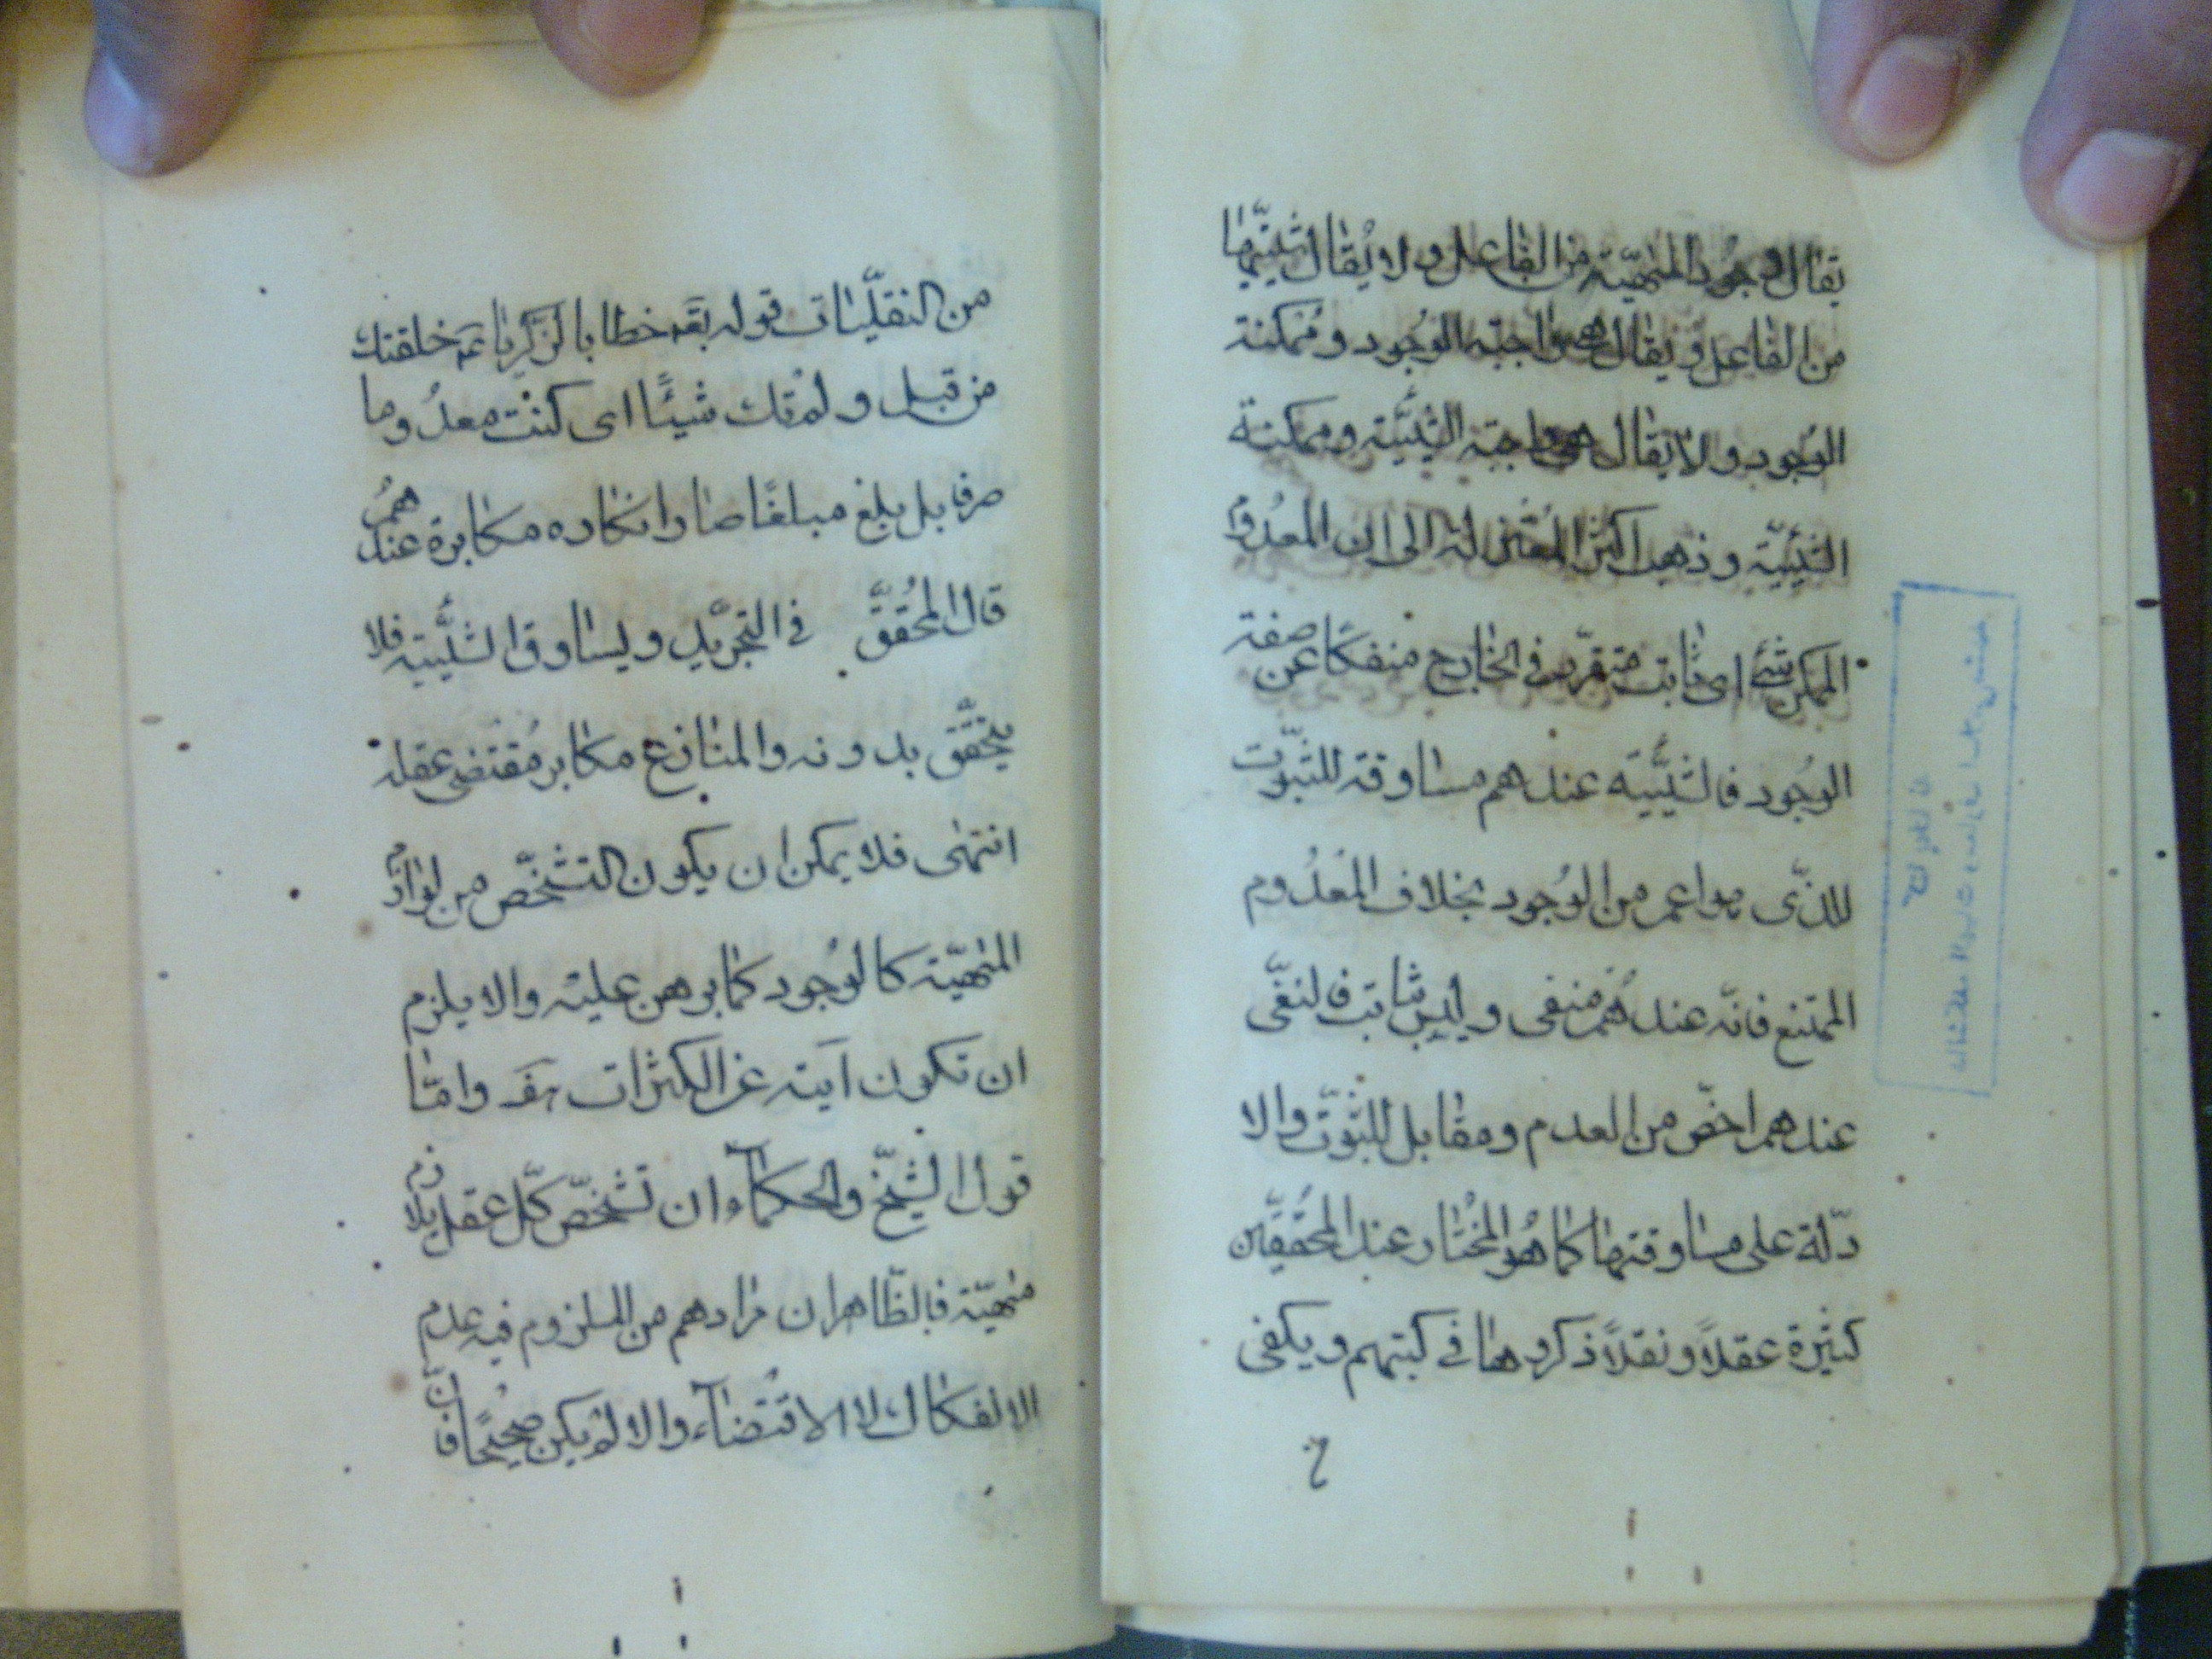 يقال وجود المهيّة من الفاعل ولا يُقال شيئيّتها
من الفاعل ويقال هى واجبة الوجود وممكنة
الوجود ولا يقال هى واجبة الشيئيّة وممكنة
الشيئيّة وذهب اكثر المعتزلة الى ان المعدوم
الممكن شئ اى ثابت متقرّر فى الخارج منفكًا عن صفة
الوجود فالشيئيّة عندهم مساوقة للثبوت
للذّى هو اعم من الوجود بخلاف المعدوم
الممتنع فانّه عندهم منفى وليس ثابت فالنفى
عندهم اخصّ من العدم ومقابل للثبوت والا
دلّة على مساوقتها كما هو المختار عند المحققين
كثيرة عقلاً ونقلاً ذكروها فى كتبهم ويكفى
من النقليّات قوله تعم خطابا لزكريا عم خلقتك
من قبل ولم تك شيئًا اى كنت معدُوما
صرفا بل بلغ مبلغًا صار انكاره مكابرة عندهم
قال المحقق فى التجريد ويساوق الشيئيّة فلا
يتحقّق بدونه والمنازع مكابر مقتضى عقله
انتهى فلا يمكن ان يكون التشخّص من لوازم
المهيّة كالوجود كما برهن عليه والا يلزم
ان تكون آبية عن الكثرات هف وامّا
قول الشيخ والحكماء ان تشخّص كلّ عقل يلازم
مهيّة فالظّاهر ان مرادهم من الملزوم فيه عدم
الانفكاك لا الاقتضاء والا لم يكن صحيحًا فان